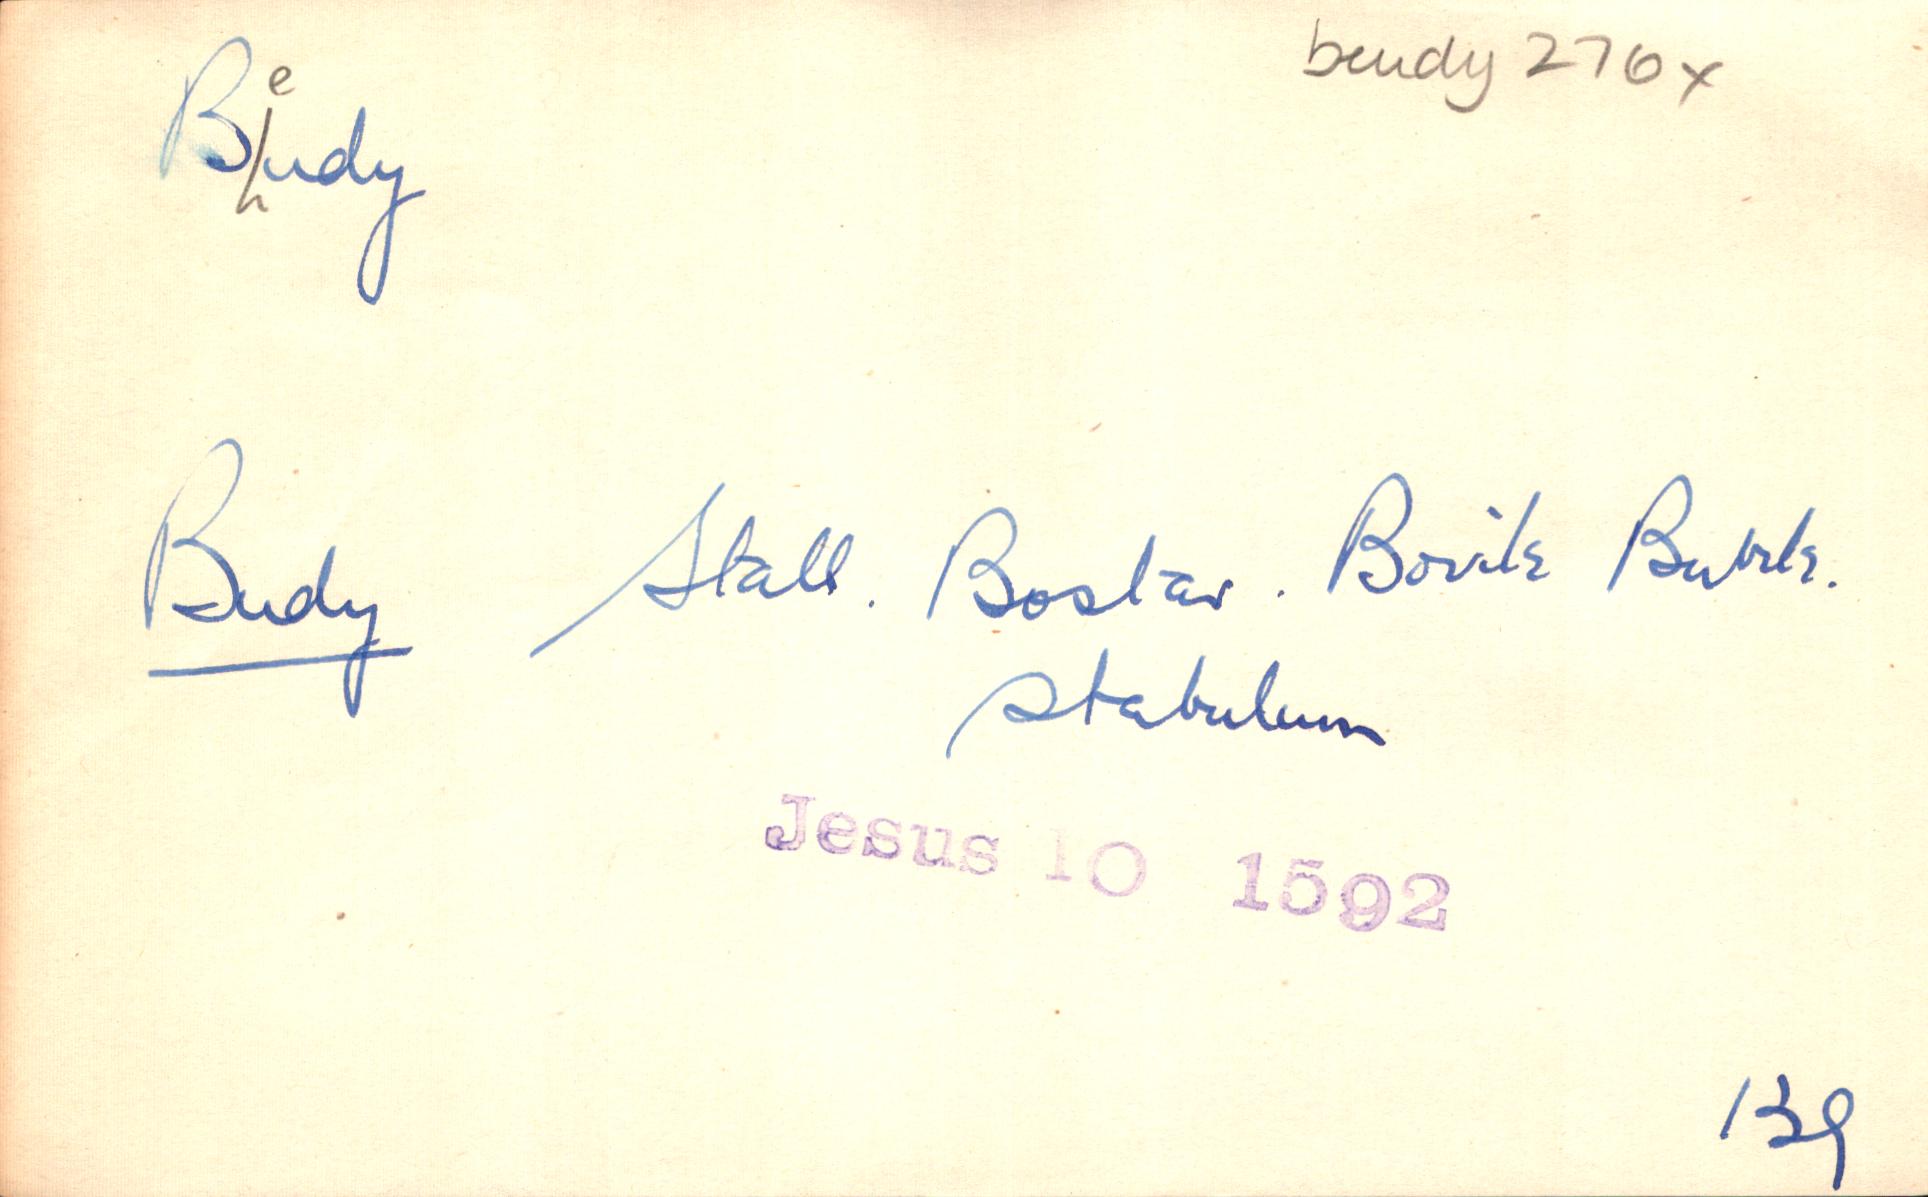 beudy 270x
Beudy
Budy Stall. Bostar. Bovile Bubile.
Stabulum
Jesus 10 1592
139